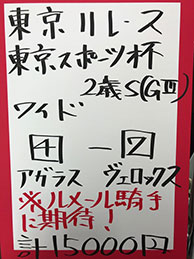 東京11レース
東京スポーツ杯
2歳S(GⅢ)
ワイド
4 - 2
アグラス ヴェロックス
※ルメール騎手
に期待!
計15000円